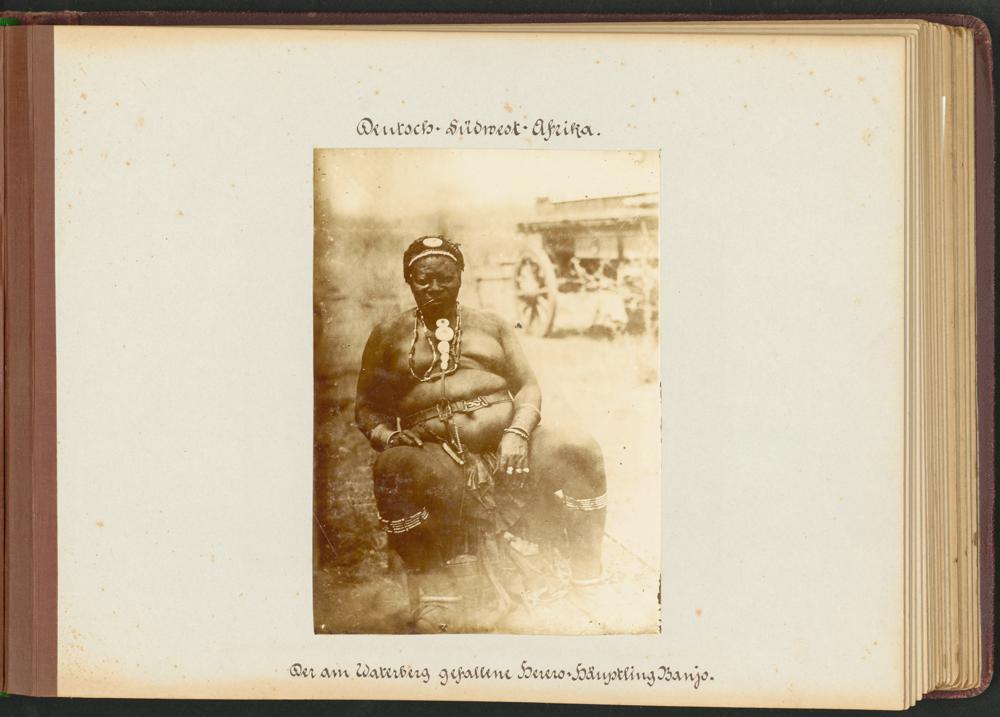 Deutsch-Südwest-Afrika.
Der am Waterberg gefallene Herero-Häuptling Banjo.